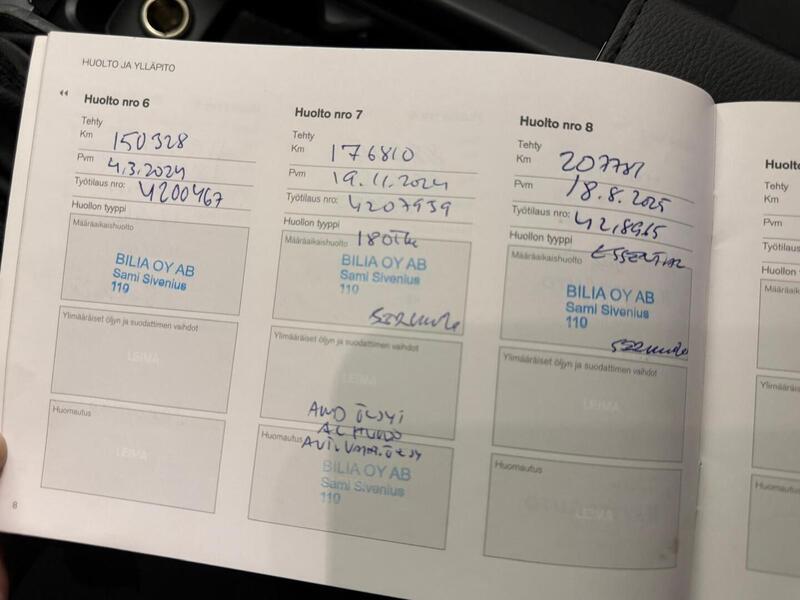 HUOLTO JA YLLÄPITO
Huolto nro 6
Tehty
Km 150328
Pvm 4.3.2024
Työtilaus nro: 4200467
Huollon tyyppi
Määräaikaishuolto
BILIA OY AB
Sami Sivenius
110
Ylimääräiset öljyn ja suodattimen vaihdot
LEIMA
Huomautus
LEIMA
8
Huolto nro 7
Tehty
Km 176810
Pvm 19.11.2024
Työtilaus nro: 4207939
Huollon tyyppi
Määräaikaishuolto
BILIA OY AB
Sami Sivenius
110
Ylimääräiset öljyn ja suodattimen vaihdot
LEIMA
AWD ÖLJYI
Huomautus
BILIA OY AB
Sami Sivenius
110
Huolto nro 8
Tehty
Km
Pvm 18.8.2025
Työtilaus nro:
Huollon tyyppi ESSENTIAL
Määräaikaishuolto
BILIA OY AB
Sami Sivenius
110
Ylimääräiset öljyn ja suodattimen vaihdot
LEIMA
Huomautus
LEIMA
Tehty
Km
Pvm
Huollon